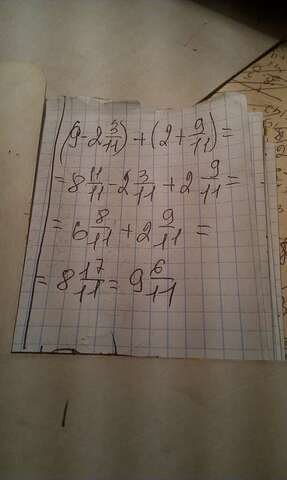 (9-2 3/11)+(2+9/11)=
=8 11/11-2 3/11+2 9/11=
=6 8/11+2 9/11=
=8 17/11=9 6/11